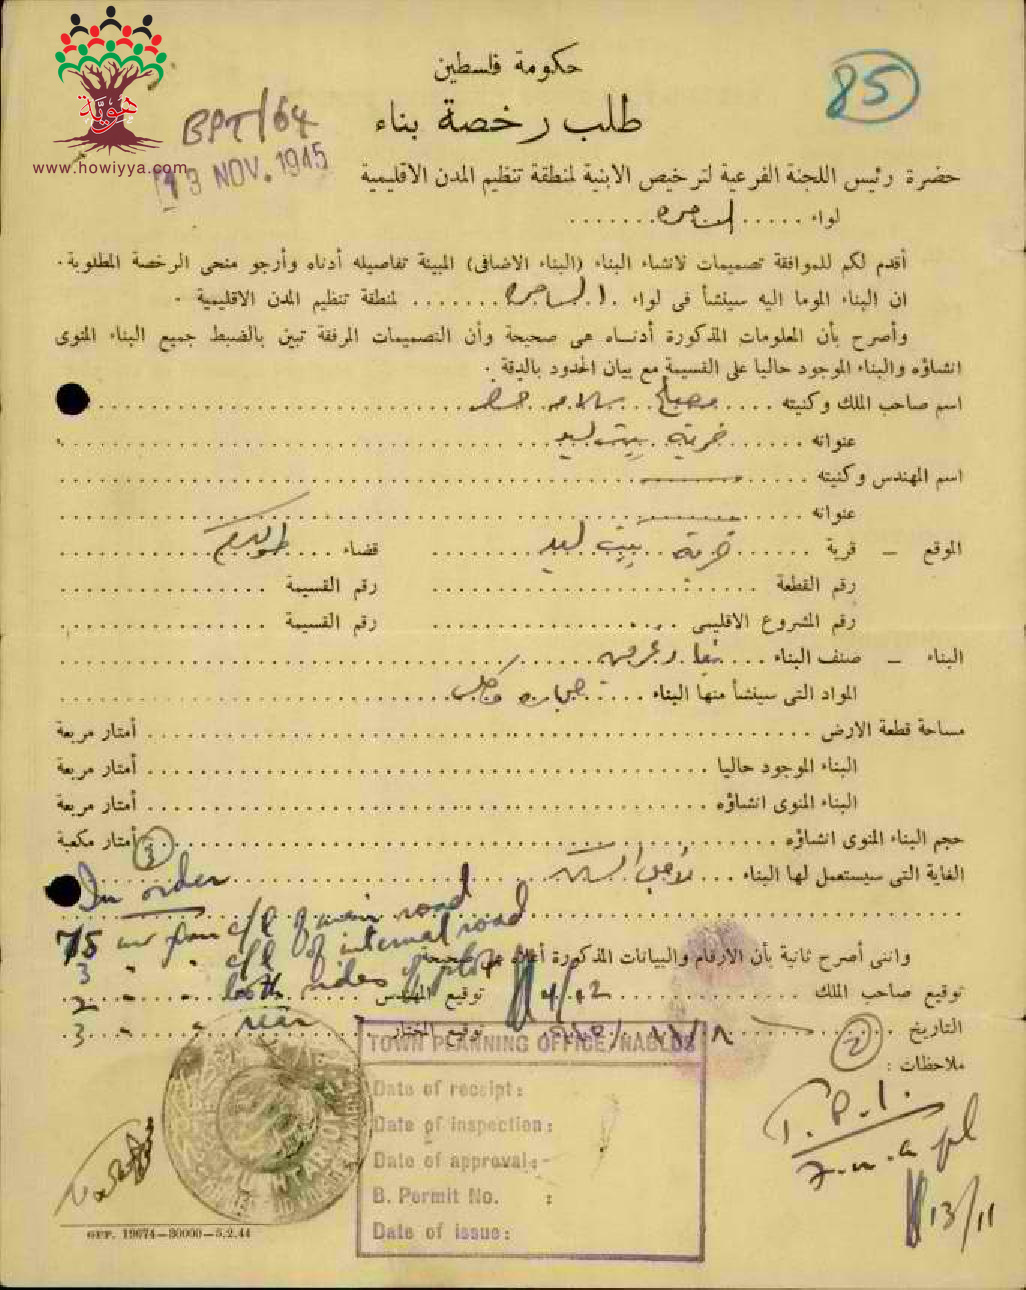 هويّة
www.howiyya.com
85
حكومة فلسطين
طلب رخصة بناء
BPT/64
13 NOV. 1945
حضرة رئيس اللجنة الفرعية لترخيص الابنية لمنطقة تنظيم المدن الاقليمية
لواء السامرة
أقدم لكم للموافقة تصميمات لانشاء البناء (البناء الاضافى) المبينة تفاصيله أدناه وأرجو منحى الرخصة المطلوبة.
ان البناء الموما اليه سينشأ فى لواء السامرة لمنطقة تنظيم المدن الاقليمية .
وأصرح بأن المعلومات المذكورة أدناه هى صحيحة وأن التصميمات المرفقة تبين بالضبط جميع البناء المنوى
انشاؤه والبناء الموجود حاليا على القسيمة مع بيان الحدود بالدقة .
اسم صاحب الملك وكنيته مصلح
عنوانه قرية بيت ليد
اسم المهندس وكنيته
عنوانه
الموقع – قرية قرية بيت ليد قضاء طولكرم
رقم القطعة رقم القسيمة
رقم المشروع الاقليمى رقم القسيمة
البناء – صنف البناء
المواد التى سينشأ منها البناء حجارة وكلس
مساحة قطعة الارض أمتار مربعة
البناء الموجود حاليا أمتار مربعة
البناء المنوى انشاؤه أمتار مربعة
حجم البناء المنوى انشاؤه أمتار مكعبة
الغاية التى سيستعمل لها البناء لاجل السكن
In order
75 mr from c/l of main road
3 " " c/l of internal road
واننى أصرح ثانية بأن الارقام والبيانات المذكورة أعلاه هى صحيحة
2 " " both sides of plot
توقيع صاحب الملك توقيع المهندس
3 " " rear
التاريخ ٨/١١/ توقيع المختار
ملاحظات :
TOWN PLANNING OFFICE, NABLUS
Date of receipt:
Date of inspection:
Date of approval:-
B. Permit No. :
Date of issue:
2
T.P.I.
13/11
GPP. 19674—30000—5.2.44